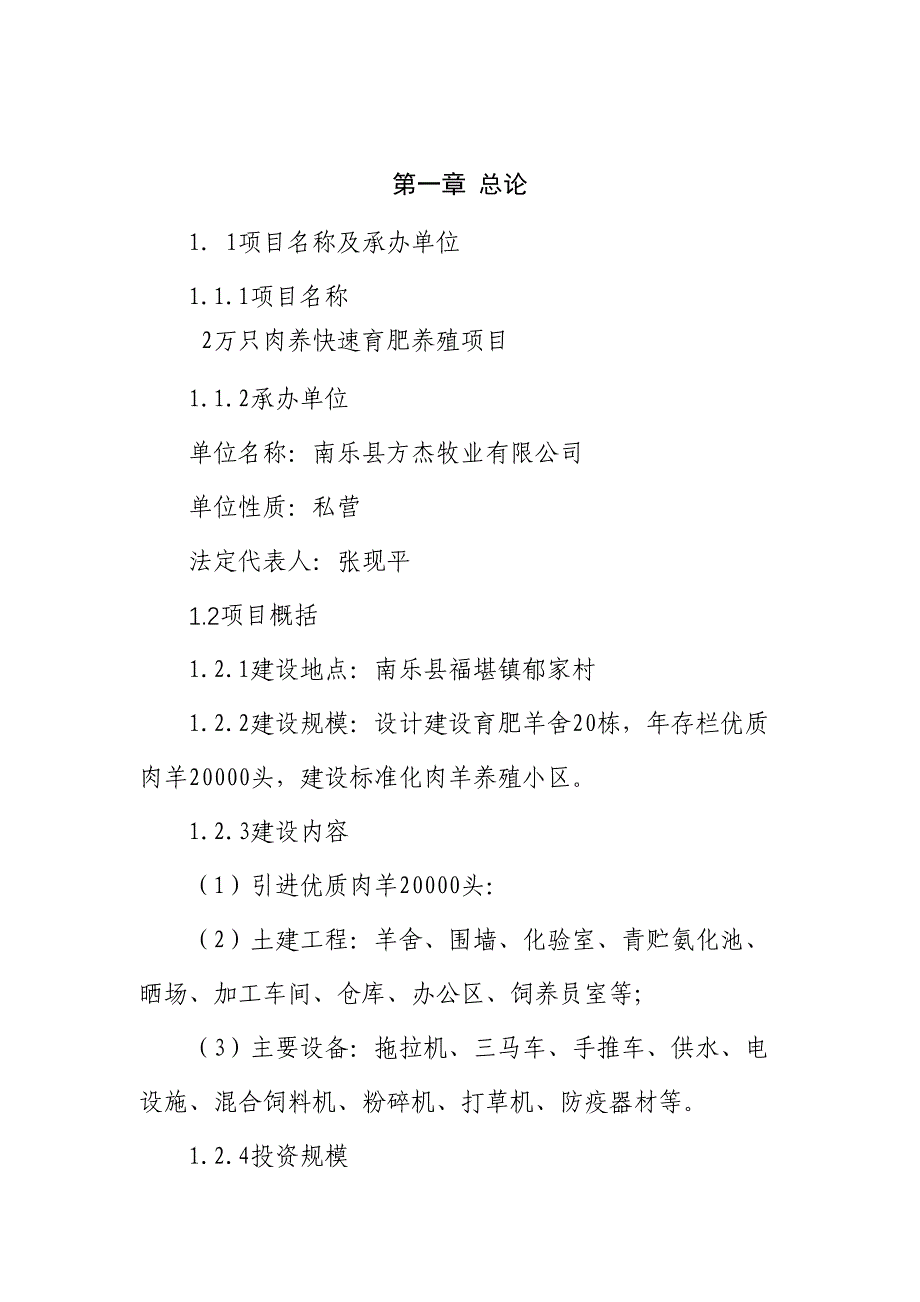 第一章 总论
1. 1项目名称及承办单位
1.1.1项目名称
2万只肉养快速育肥养殖项目
1.1.2承办单位
单位名称：南乐县方杰牧业有限公司
单位性质：私营
法定代表人：张现平
1.2项目概括
1.2.1建设地点：南乐县福堪镇郁家村
1.2.2建设规模：设计建设育肥羊舍20栋，年存栏优质
肉羊20000头，建设标准化肉羊养殖小区。
1.2.3建设内容
（1）引进优质肉羊20000头：
（2）土建工程：羊舍、围墙、化验室、青贮氨化池、
晒场、加工车间、仓库、办公区、饲养员室等；
（3）主要设备：拖拉机、三马车、手推车、供水、电
设施、混合饲料机、粉碎机、打草机、防疫器材等。
1.2.4投资规模